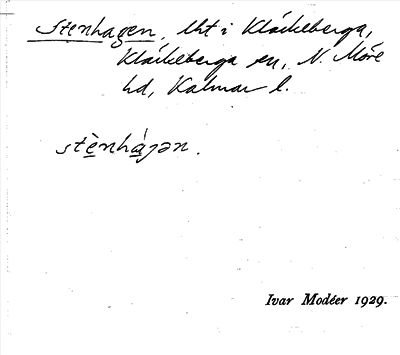 Stenhagen, lht i Kläckeberga,
Kläckeberga sn, N. Möre
hd, Kalmar l.
stènháɡən.
Ivar Modéer 1929.